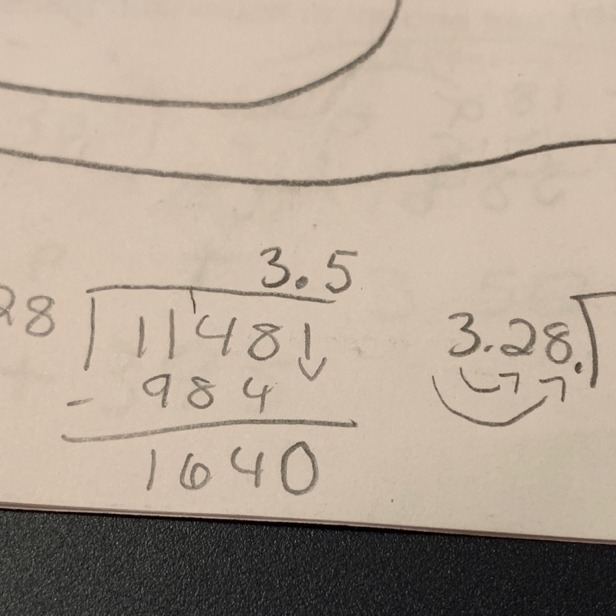 3.5
28 1148
- 984
1640
3.28.